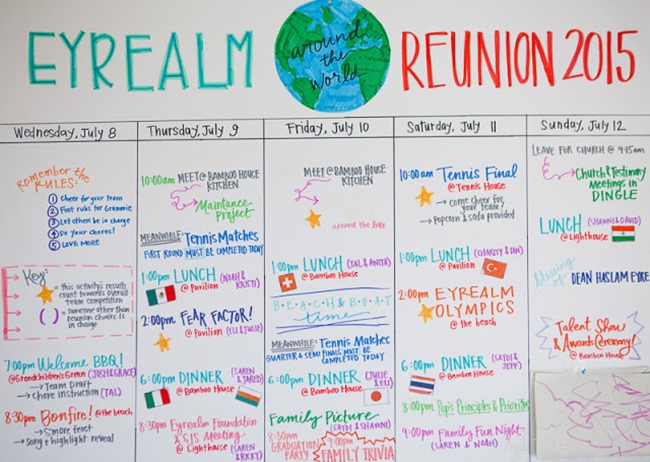 EYREALM
around
the
world
REUNION 2015
Wednesday, July 8
Remember the
RULES:
1 Cheer for your team
2 Foot rubs for Grammie
3 Let others be in charge
4 Do your chores!
5 LOVE MORE
Key:
= this activity's results
count towards overall
team competition
( ) = someone other than
reunion chairs is
in charge
7:00pm Welcome BBQ!
@Grandchildren's Green (JOSH&GRACE)
→ Team Draft
→ Chore instruction (TAL)
8:30pm Bonfire! @ the beach
→ S'more feast
→ Song + highlight reveal
Thursday, July 9
10:00am MEET@ BAMBOO HOUSE
KITCHEN
Maintance
Project
MEANWHILE: Tennis Matches
FIRST ROUND MUST BE COMPLETED TODAY
1:00pm LUNCH (NOAH &
@ Pavilion KRISTI)
2:00pm FEAR FACTOR!
@ Pavilion (ELI & JULIE)
6:00pm DINNER (SAREN
@ Bamboo House & JARED)
8:30pm Eyrealm Foundation
& SJS Meeting
@ Lighthouse (SAREN
& RICKY)
Friday, July 10
MEET@ BAMBOO HOUSE
KITCHEN
around the lake
1:00pm LUNCH (TAL & ANITA)
@ Bamboo House
BEACH & BOAT
time
MEANWHILE: Tennis Matches
QUARTER & SEMI FINALS MUST BE
COMPLETED TODAY
6:00pm DINNER (JULIE
@ Bamboo House & ELI)
Family Picture
(SAYDI & SHAWNI)
8:30pm
GRADUATION
PARTY
9:00pm
FAMILY TRIVIA
Saturday, July 11
10:00am Tennis Final
@ Tennis House
→ come cheer for
your team!
→ Popcorn & soda provided
1:00pm LUNCH (CHARITY & IAN)
@ Pavilion
2:00pm EYREALM
OLYMPICS
@ the beach
6:00pm DINNER (SAYDI &
@ Bamboo House JEFF)
8:00pm Pop's Principles & Priorities
9:00pm Family Fun Night
(SAREN & NOAH)
Sunday, July 12
LEAVE FOR CHURCH @ 9:15am
Church & Testimony
Meetings in
DINGLE
LUNCH (SHAWNI & DAVID)
@ Lighthouse
Blessing of
DEAN HASLAM EYRE
Talent Show
& Awards Ceremony!
@ Bamboo House